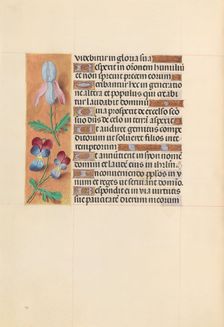 videbitur in gloria sua
Respexit in orationem humiliu
et non sprevit precem eorum
Scribantur hec in generatione
altera et populus qui creabit
tur laudabit dominum
prospexit de excelso sco
suo dns de celo in terra aspexit
Ut audiret gemitus compedi
ut solveret filios
Ut annuntient in syon nomen
domini et laude eius in ihrlm
In conveniendo populos in
unum et reges ut serviant domino
Respondit ei in via virtutis
sue paucitate dierum meorum